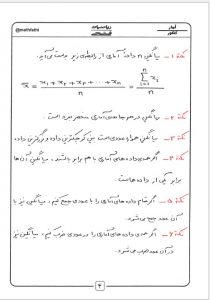 @mathfathi
ریاضیات
آمار
کنکور
نکته 1 — میانگین n داده آماری از رابطه‌ی زیر بدست می‌آید.
x̄ = (x₁ + x₂ + x₃ + ... + xₙ) / n = (Σⁿᵢ₌₁ xᵢ) / n
نکته 2 — میانگین در هر جامعه‌ی آماری منحصر بفرد است.
نکته 3 — میانگین همواره عددی است بین کوچکترین داده و بزرگترین داده
نکته 4 — اگر همه‌ی داده های آماری با هم برابر باشند، میانگین آن ها
برابر یکی از داده هاست.
نکته 5 — اگر تمام داده های آماری را با عددی جمع کنیم، میانگین نیز با
آن عدد جمع می شود.
نکته 6 — اگر همه‌ی داده های آماری را در عددی ضرب کنیم، میانگین نیز
در آن عدد ضرب می شود.